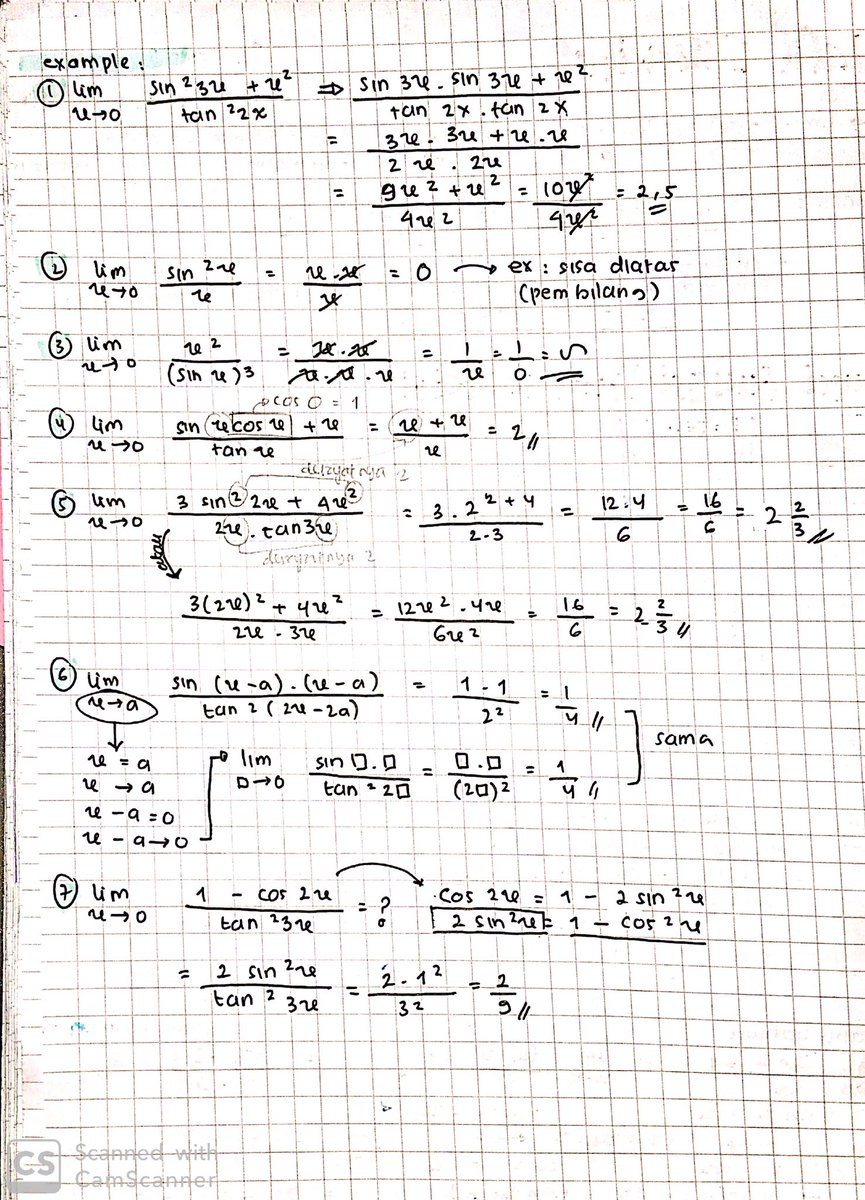 example :
① lim x→0 (sin²3x + x²)/(tan²2x) ⇒ (sin 3x . sin 3x + x²)/(tan 2x . tan 2x)
= (3x . 3x + x . x)/(2x . 2x)
= (9x² + x²)/(4x²) = 10x²/4x² = 2,5
② lim x→0 (sin²x)/x = (x . x)/x = 0 → ex : sisa diatas
(pembilang)
③ lim x→0 x²/(sin x)³ = (x . x)/(x . x . x) = 1/x = 1/0 = ∽
cos 0 = 1
④ lim x→0 (sin x cos x + x)/(tan x) = (x + x)/x = 2 //
derajatnya 2
⑤ lim x→0 (3 sin² 2x + 4x²)/(2x . tan 3x) = (3 . 2² + 4)/(2 . 3) = (12 . 4)/6 = 16/6 = 2 2/3 //
derajatnya 2
atau
(3(2x)² + 4x²)/(2x . 3x) = (12x² . 4x)/(6x²) = 16/6 = 2 2/3 //
⑥ lim x→a (sin (x-a) . (x-a))/(tan² (2x-2a)) = (1 . 1)/2² = 1/4 //
sama
x = a
x → a
x - a = 0
x - a → 0
lim □→0 (sin □ . □)/(tan² 2□) = (□ . □)/(2□)² = 1/4 //
⑦ lim x→0 (1 - cos 2x)/(tan²3x) = ? cos 2x = 1 - 2 sin²x
2 sin²x = 1 - cos 2x
= (2 sin²x)/(tan² 3x) = (2 . 1²)/3² = 2/9 //
CS Scanned with
CamScanner